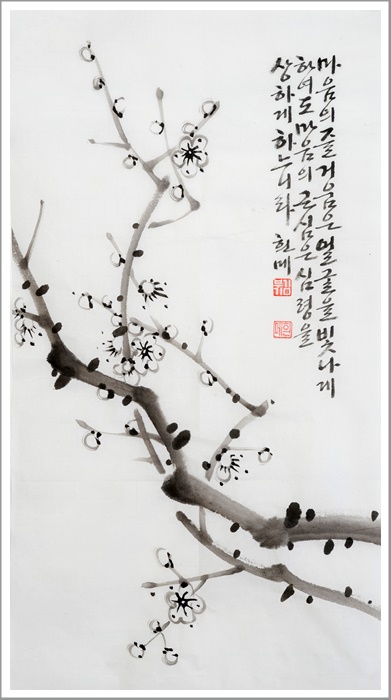 마음의 즐거움은 얼굴을 빛나게
하여도 마음의 근심은 심령을
상하게 하느니라